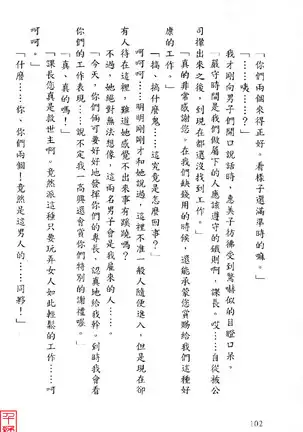 「你們兩個來得正好。看樣子還滿準時的嘛。」
「……咦……？」
我才剛向男子們開口說話時，惠美子彷彿受到驚嚇似的目瞪口呆。
「嚴守時間是我們做屬下的人應該遵守的鐵則啊，課長。哎……自從被公
司攆出來之後，到現在都還沒找到工作。」
「真的非常感謝您。在我們缺錢用的時候，還能承蒙您賞賜給我們這種好
康的工作。」
「搞、搞什麼鬼……這究竟是怎麼回事？」
呵呵呵……明明剛剛才和她說過，這裡不准一般人隨便進入，但是現在卻
有人待在這裡，難道她感覺不出來事有蹊蹺嗎？
不過，她絕對無法想像，這兩名男子會是我雇來的人……
「今天，你們倆可要好好地發揮你們的專長，認真地給我幹。到時我會看
你們的工作表現……說不定我一高興還會賞你們特別的謝禮喔。」
「真、真的嗎！」
「課長您真是救世主啊。竟然派這種只要玩弄女人如此輕鬆的工作……呵
呵呵。」
「什麼……你、你們兩個！竟然是這男人的……同夥！」
102